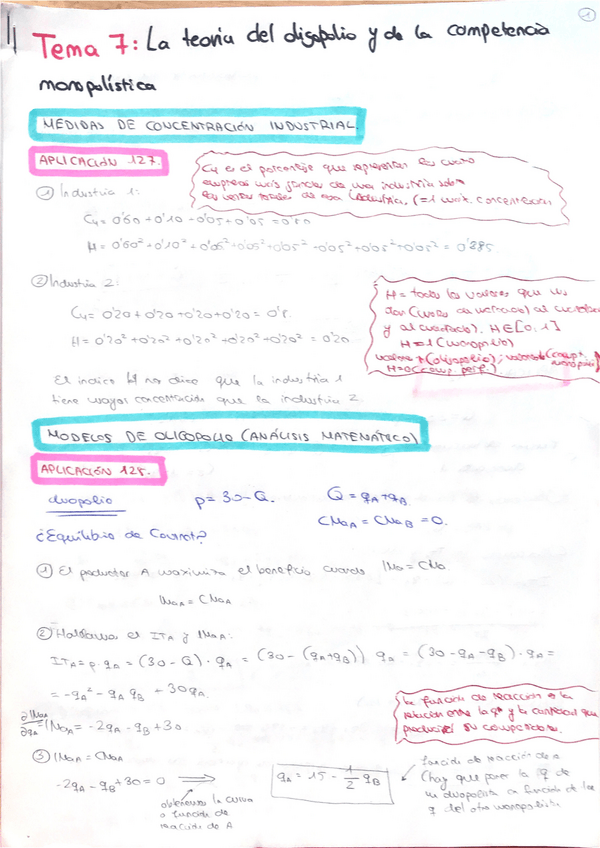 1
Tema 7: La teoría del oligopolio y de la competencia
monopolística
MEDIDAS DE CONCENTRACIÓN INDUSTRIAL.
APLICACIÓN 127.
C4 es el porcentaje que representan las cuatro
empresas más grandes de una industria sobre
las ventas totales de esa industria. (=1 max. concentración
① Industria 1:
C4= 0'60 + 0'10 + 0'05 + 0'05 = 0'80
H = 0'60² + 0'10² + 0'05² + 0'05² + 0'05² + 0'05² + 0'05² + 0'05² = 0'385
② Industria 2:
C4= 0'20 + 0'20 + 0'20 + 0'20 = 0'8.
H = 0'20² + 0'20² + 0'20² + 0'20² + 0'20² = 0'20
H = todos los valores que nos
dan (cuotas de mercado) al cuadrado
y al cuadrado). H∈[0,1]
H=1 (monopolio)
H=0 (comp. perf.)
El índice H nos dice que la industria 1
tiene mayor concentración que la industria 2.
MODELOS DE OLIGOPOLIO (ANÁLISIS MATEMÁTICO)
APLICACIÓN 128.
duopolio p= 30-Q. Q = qA+qB.
CMaA = CMaB = 0.
¿Equilibrio de Cournot?
① El productor A maximiza el beneficio cuando IMa = CMa.
IMaA = CMaA
② Hallamos el ITA y IMaA:
ITA = p·qA = (30-Q)·qA = (30-(qA+qB)) qA = (30-qA-qB)·qA =
= -qA² - qA qB + 30qA.
IMaA = -2qA - qB + 30
la función de reacción es la
relación entre la qª y la cantidad que
producirá su competidor.
③ IMaA = CMaA
-2qA - qB + 30 = 0 ⟹ qA = 15 - 1/2 qB
obtenemos la curva
o función de
reacción de A
función de reacción de A
(hay que poner la q de
un duopolista en función de la
q del otro